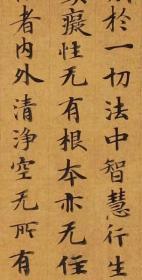 於一切法中智慧行生
癡性无有根本亦无住
者内外清淨空无所有